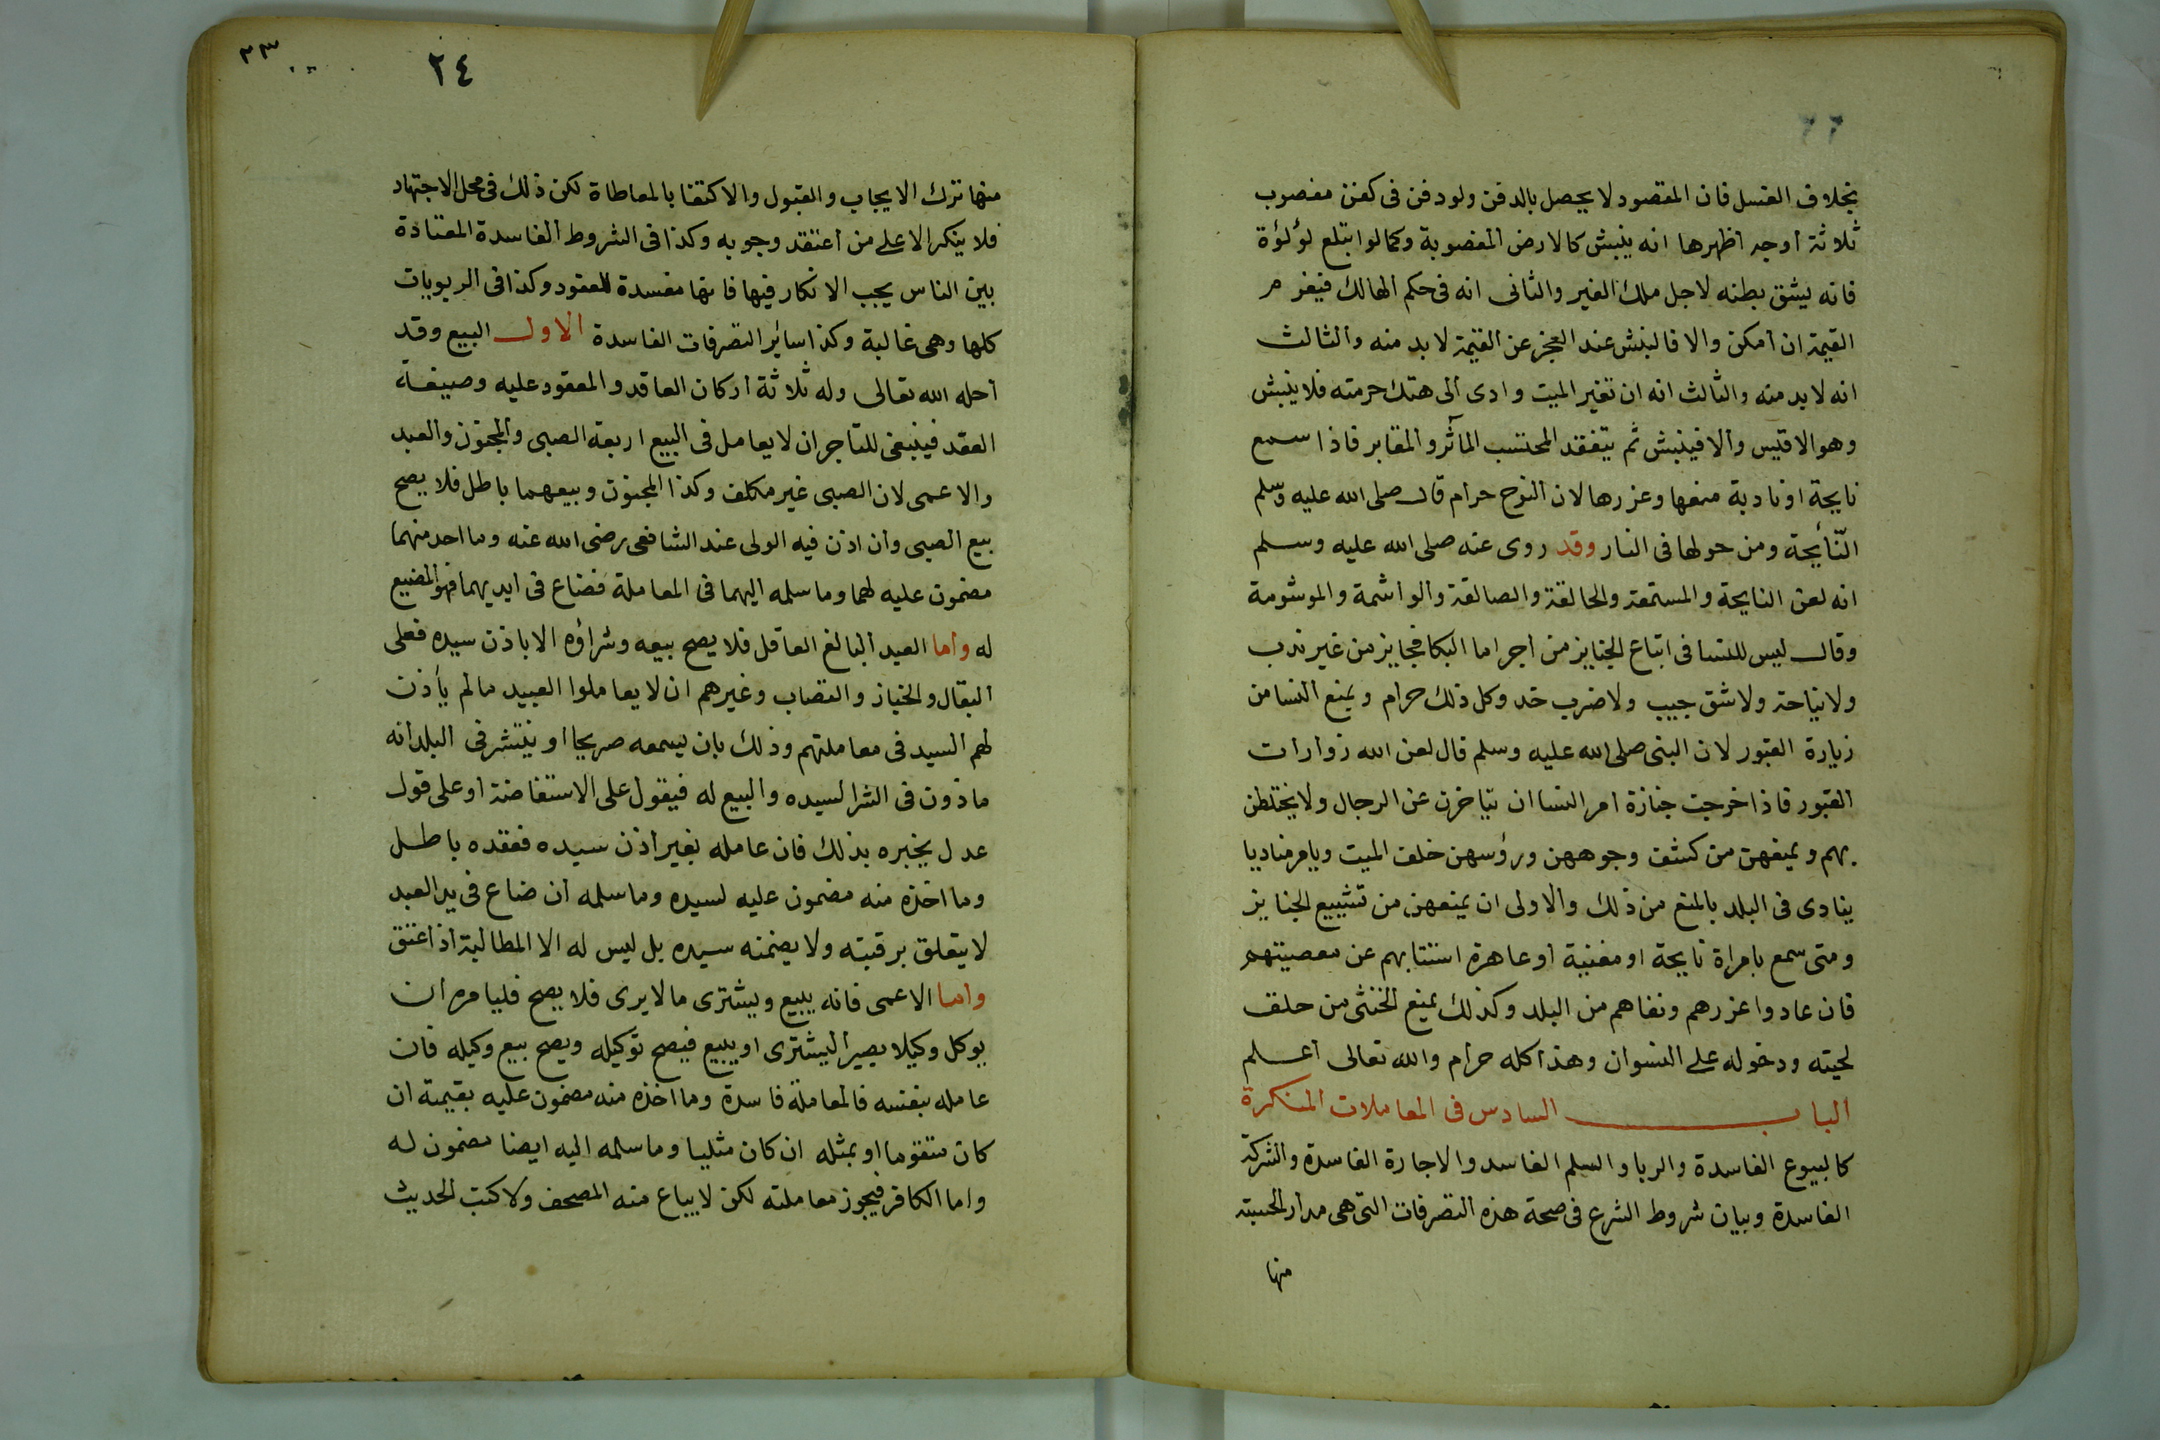 بخلاف الغسل فان المقصود لا يحصل بالدفن ولو دفن فى كفن مغصوب
ثلاثة أوجه أظهرها انه ينبش كالارض المغصوبة وكما لو ابتلع لؤلؤة
فانه يشق بطنه لاجل ملك الغير والثانى انه فى حكم الهالك فيغرم
القيمة ان أمكن والا فالنبش عند العجز عن القيمة لا بد منه والثالث
انه لا بد منه والثالث انه ان تغير الميت وادى الى هتك حرمته فلا ينبش
وهو الاقيس والا فينبش ثم يتفقد المحتسب المآثر والمقابر فاذا سمع
نايحة او نادبة منعها وعزرها لان النوح حرام قال صلى الله عليه وسلم
النّائحة ومن حولها فى النار وقد روى عنه صلى الله عليه وسلم
انه لعن النايحة والمستمعة والحالقة والصالقة والواشمة والموشومة
وقال ليس للنسا فى اتباع الجنايز من أجر اما البكا فجايز من غير ندب
ولا نياحة ولا شق جيب ولا ضرب خد وكل ذلك حرام ويمنع النسا من
زيارة القبور لان النبى صلى الله عليه وسلم قال لعن الله زوارات
القبور فاذا خرجت جنازة امر النسا ان يتاخرن عن الرجال ولا يختلطن
بهم ويمنعهن من كشف وجوههن ورؤسهن خلف الميت ويامر مناديا
ينادى فى البلد بالمنع من ذلك والاولى ان يمنعهن من تشييع الجنايز
ومتى سمع بامراة نايحة او مغنية أو عاهرة استتابهم عن معصيتهم
فان عادوا عزرهم ونفاهم من البلد وكذلك يمنع الخنثى من حلق
لحيته ودخوله على النسوان وهذا كله حرام والله تعالى أعلم
الباب السادس فى المعاملات المنكرة
كالبيوع الفاسدة والربا والسلم الفاسد والاجارة الفاسدة والشركة
الفاسدة وبيان شروط الشرع فى صحة هذه التصرفات التى هى مدار الحسبة
منها
٢٤
٣٣
منها ترك الايجاب والقبول والاكتفا بالمعاطاة لكن ذلك فى محل الاجتهاد
فلا ينكر الا على من أعتقد وجوبه وكذا فى الشروط الفاسدة المعتادة
بين الناس يجب الانكار فيها فانها مفسدة للعقود وكذا فى الربويات
كلها وهى غالبة وكذا سائر التصرفات الفاسدة الاول البيع وقد
أحله الله تعالى وله ثلاثة أركان العاقد والمعقود عليه وصيغة
العقد فينبغى للتاجر ان لا يعامل فى البيع اربعة الصبى والمجنون والعبد
والاعمى لان الصبى غير مكلف وكذا المجنون وبيعهما باطل فلا يصح
بيع الصبى وان اذن فيه الولى عند الشافعى رضى الله عنه وما اخذ منهما
مضمون عليه لهما وما سلمه اليهما فى المعاملة فضاع فى ايديهما فهو المضيع
له وأما العبد البالغ العاقل فلا يصح بيعه وشراؤه الا باذن سيده فعلى
البقال والخباز والقصاب وغيرهم ان لا يعاملوا العبيد ما لم يأذن
لهم السيد فى معاملتهم وذلك بان يسمعه صريحا او ينتشر فى البلد انه
ماذون فى الشرا لسيده والبيع له فيقول على الاستفاضة أو على قول
عدل يخبره بذلك فان عامله بغير أذن سيده فعقده باطل
وما اخذه منه مضمون عليه لسيده وما سلمه ان ضاع فى يد العبد
لا يتعلق برقبته ولا يضمنه سيده بل ليس له الا المطالبة اذا عتق
واما الاعمى فانه يبيع ويشترى ما لا يرى فلا يصح فليامره ان
يوكل وكيلا بصيرا ليشترى او يبيع فيصح توكيله ويصح بيع وكيله فان
عامله بنفسه فالمعاملة فاسدة وما اخذه منه مضمون عليه بقيمته ان
كان متقوما او بمثله ان كان مثليا وما سلمه اليه ايضا مضمون له
واما الكافر فيجوز معاملته لكن لا يباع منه المصحف ولا كتب الحديث